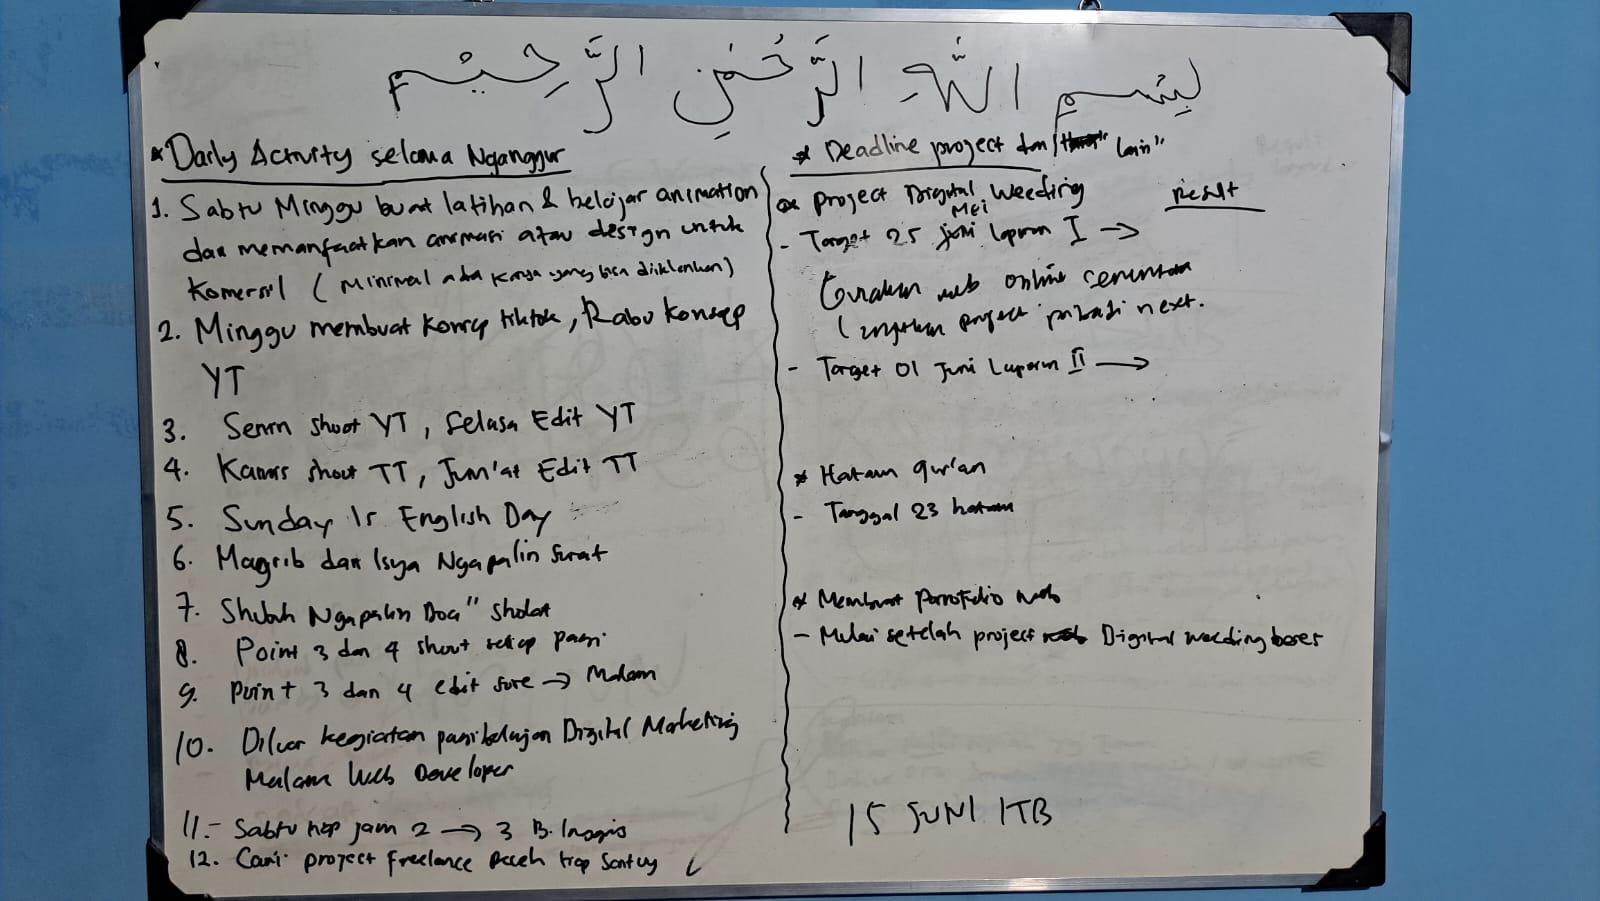 بِسْمِ اللَّهِ الرَّحْمَنِ الرَّحِيْمِ
* Daily Activity selama Nganggur
1. Sabtu Minggu buat latihan & belajar animation
dan memanfaatkan animasi atau design untuk
Komersil (Minimal ada karya yang bisa diiklankan)
2. Minggu membuat Konsep tiktok, Rabu Konsep
YT
3. Senin shoot YT, Selasa Edit YT
4. Kamis shoot TT, Jum'at Edit TT
5. Sunday Is English Day
6. Magrib dan Isya Ngapalin Surat
7. Shubuh Ngapalin Doa" Sholat
8. Point 3 dan 4 shoot setiap pagi
9. Point 3 dan 4 edit sore → Malam
10. Diluar kegiatan pagi belajar Digital Marketing
Malam Web Developer
11. - Sabtu tiap jam 2 → 3 B. Inggris
12. Cari project Freelance tiap
* Deadline project dan lain"
Result
Project Digital Weeding
Mei
- Target 25 Laporan I →
web online
project pribadi next.
- Target 01 Juni Laporan II →
* Hatam Qur'an
- Tanggal 23 hatam
* Membuat Porrotfolio Web
- Mulai setelah project Digital weeding beres
15 JUNI ITB